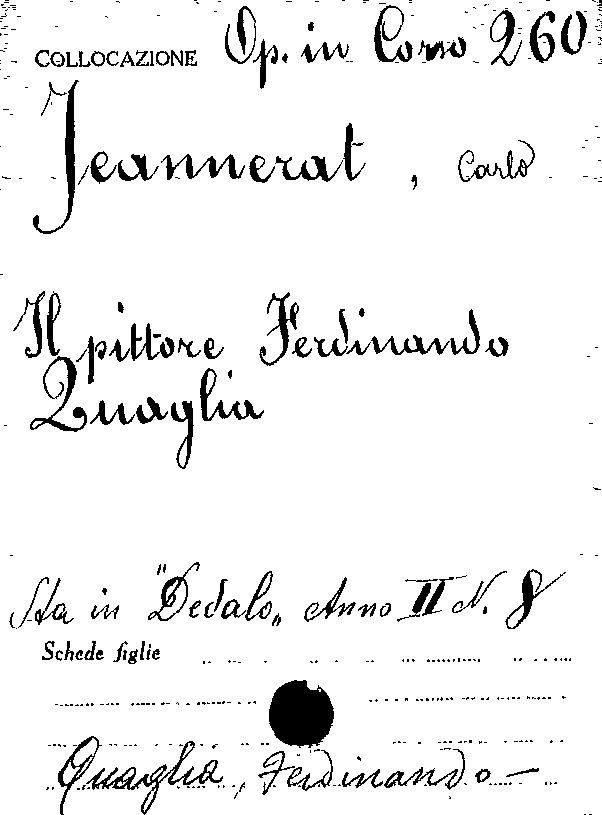 COLLOCAZIONE Op. in Corso 260
Jeannerat, Carlo
Il pittore Ferdinando
Quaglia
Sta in "Dedalo" Anno II N. 8
Schede figlie
Quaglia, Ferdinando -